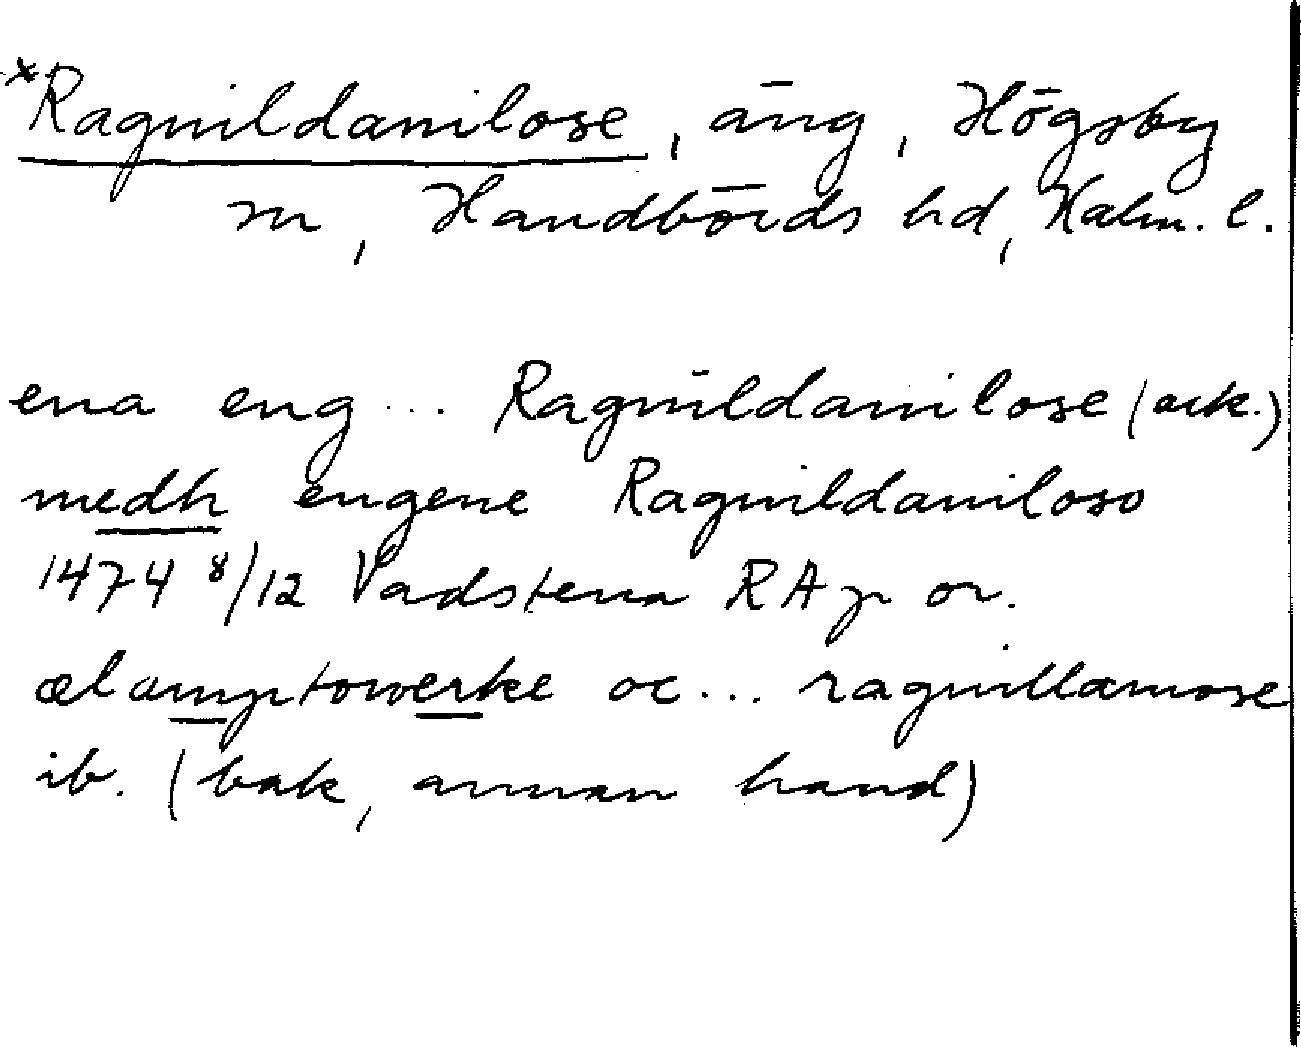 *Ragnildamlose, äng, Högsby
sn, Handbörds hd, Kalm. l.
ena eng ... Ragnildamlose (ack.)
medh engene Ragnildamloso
1474 8/12 Vadstena RAp or.
ælamptowerke oc ... ragnillamose
ib. (bak, annan hand)